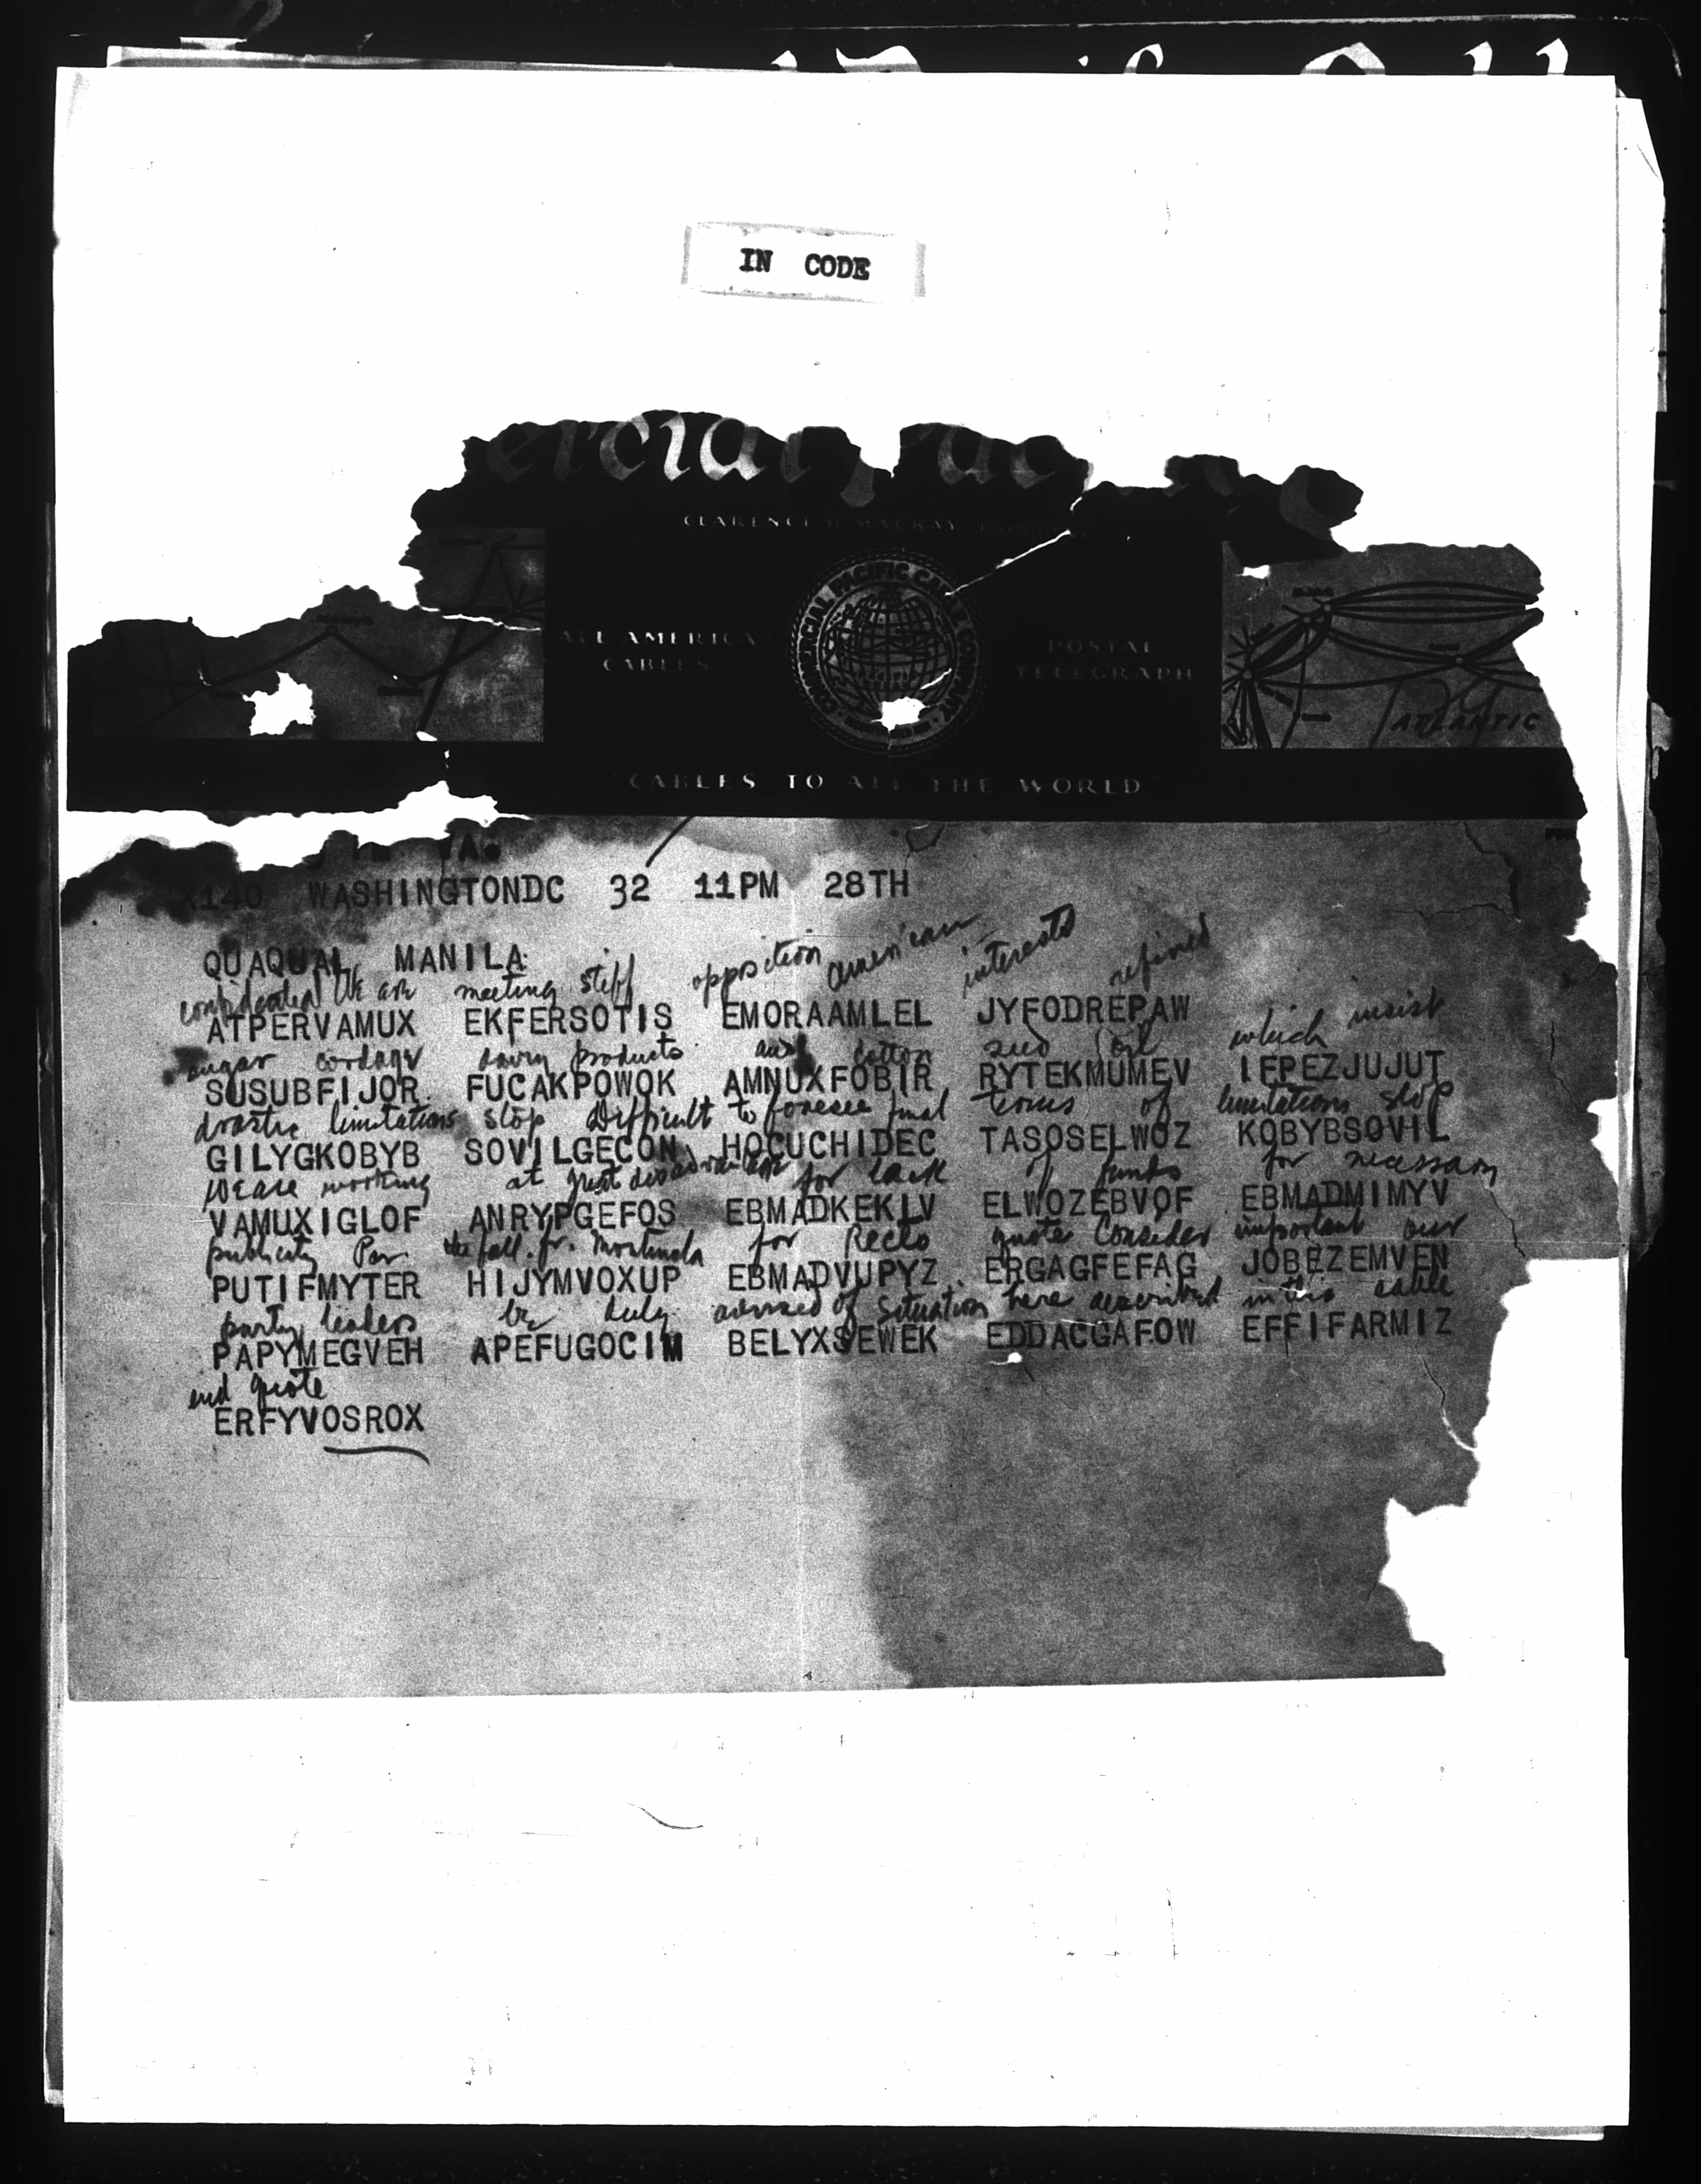 IN CODE
CLARENCE H. MACKAY
COMMERCIAL PACIFIC CABLE COMPANY
ALL AMERICA CABLES
POSTAL TELEGRAPH
ATLANTIC
"CABLES TO ALL THE WORLD"
140 WASHINGTONDC 32 11PM 28TH
QUAQUAL MANILA
confidential We are meeting stiff opposition american interests refined
ATPERVAMUX EKFERSOTIS EMORAAMLEL JYFODREPAW
sugar cordage dairy products and cotton seed oil which insist
SUSUBFIJOR FUCAKPOWOK AMNUXFOBIR RYTEKMUMEV IFPEZJUJUT
drastic limitations stop Difficult to foresee final terms of limitations stop
GILYGKOBYB SOVILGECON HOCUCHIDEC TASOSELWOZ KOBYBSOVIL
We are working at great disadvantage for lack of funds for necessary
VAMUXIGLOF ANRYPGEFOS EBMADKEKIV ELWOZEBVOF EBMADMIMYV
publicity Par the foll. fr. Montinola for Recto quote Consider important our
PUTIFMYTER HIJYMVOXUP EBMADVUPYZ ERGAGFEFAG JOBEZEMVEN
party leaders be duly advised of situation here described in this cable
PAPYMEGVEH APEFUGOCIM BELYXSEWEK EDDACGAFOW EFFIFARMIZ
end quote
ERFYVOSROX